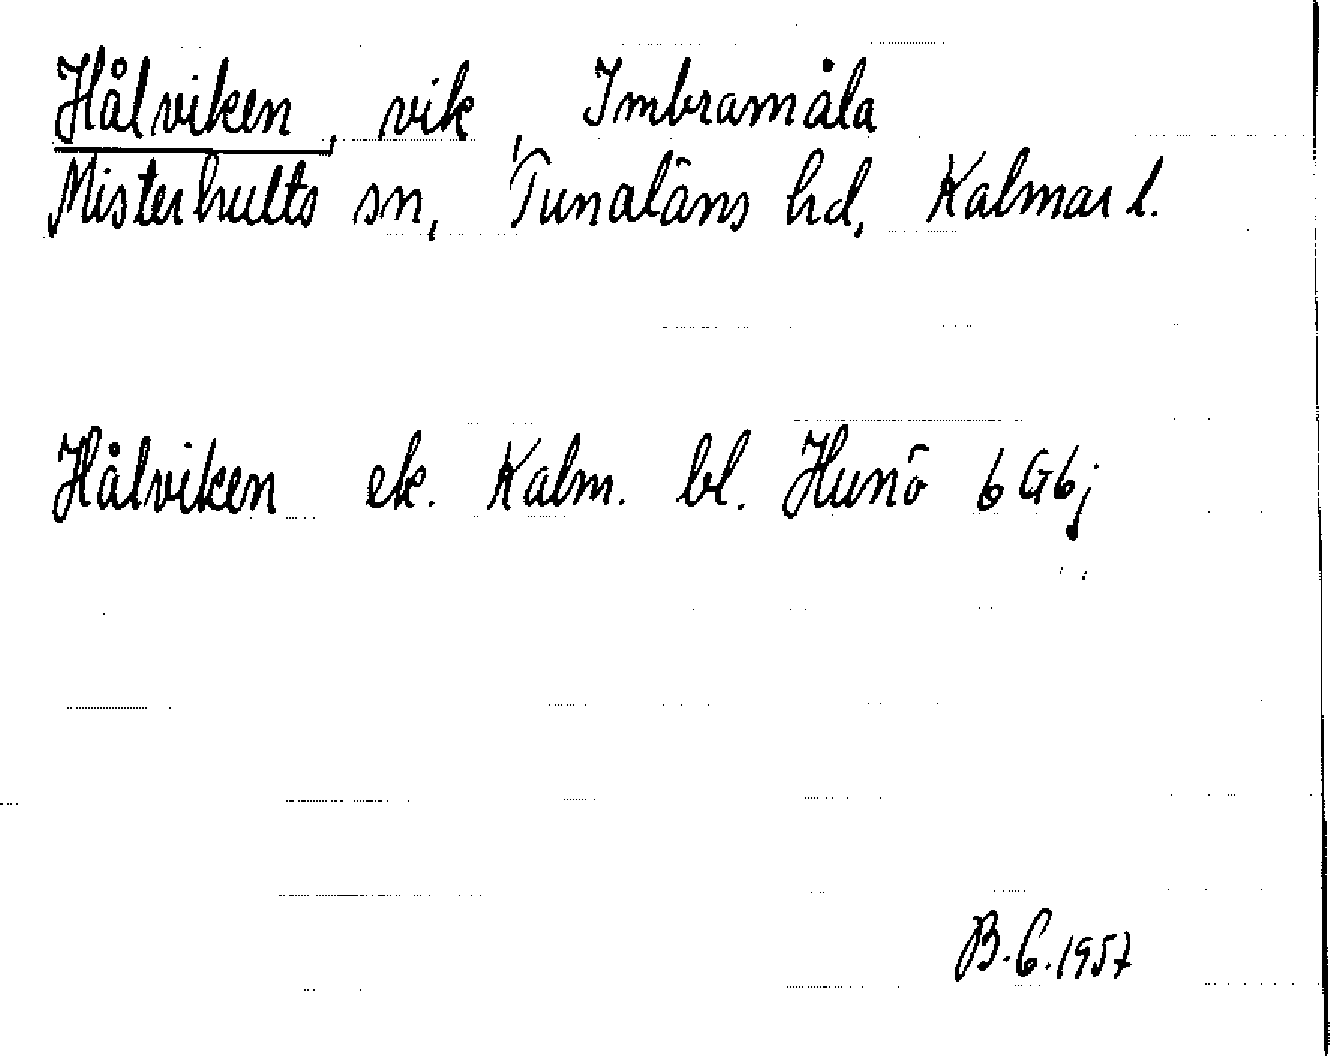 Hålviken, vik, Imbramåla
Misterhults sn, Tunaläns hd, Kalmar l.
Hålviken ek. Kalm. bl. Hunö 6 G6j
B.G.1957